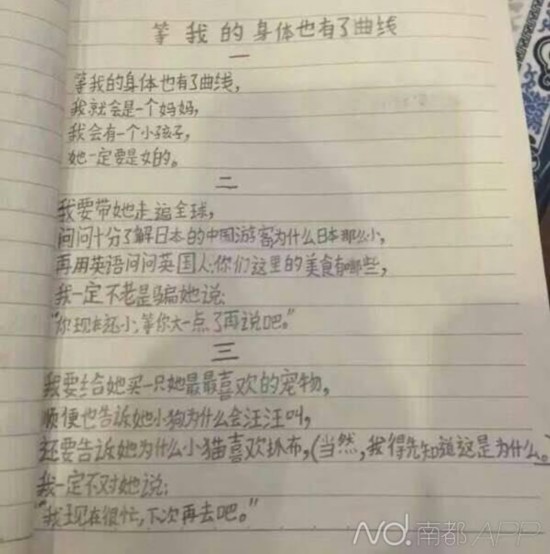 等我的身体也有了曲线
一
等我的身体也有了曲线,
我就会是一个妈妈,
我会有一个小孩子,
她一定要是女的。
二
我要带她走遍全球,
问问十分了解日本的中国游客为什么日本那么小,
再用英语问问英国人:你们这里的美食有哪些,
我一定不老是骗她说:
"你现在还小;等你大一点了再说吧。"
三
我要给她买一只她最最喜欢的宠物,
顺便也告诉她小狗为什么会汪汪叫,
还要告诉她为什么小猫喜欢抓布,(当然,我得先知道这是为什么。
我一定不对她说:
"我现在很忙,下次再去吧。"
N.D.南都APP